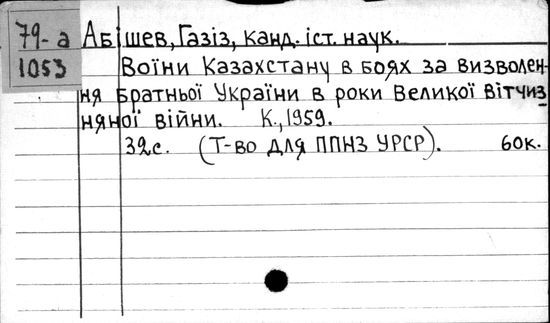 79-а
1053
Абішев, Газіз, канд. іст. наук.
Воїни Казахстану в боях за визволен-
ня братньої України в роки Великої Вітчиз
няної війни. К., 1959.
32с. (Т-во для ППНЗ УРСР). 60к.